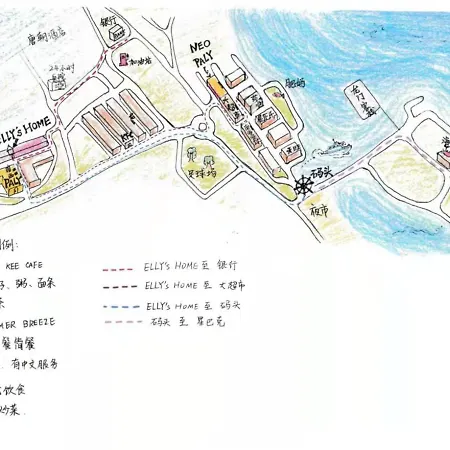 唐朝酒店
银行
加油站
24小时
NEO
PALY
ELLY'S HOME
PALY
KFC
足球场
码头
夜市
例:
KEE CAFE
粥、面条
ELLY'S HOME 至 银行
ELLY'S HOME 至 大超市
MER BREEZE
ELLY'S HOME 至 码头
餐简餐
码头 至 星巴克
有中文服务
饮食
炒菜